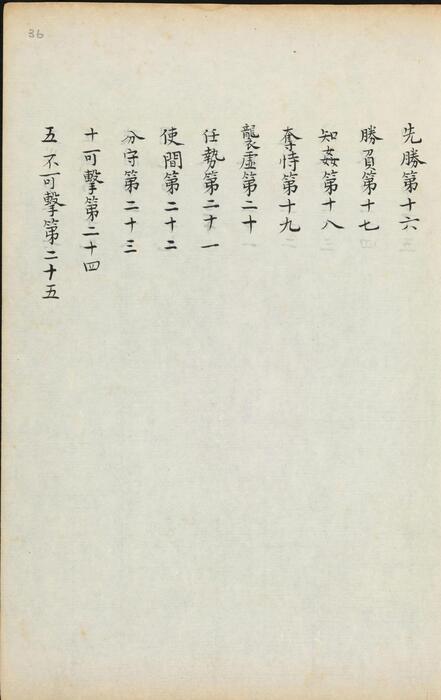 36
先勝第十六
勝負第十七
知姦第十八
奪恃第十九
襲虛第二十
任勢第二十一
使間第二十二
分守第二十三
十可擊第二十四
五不可擊第二十五